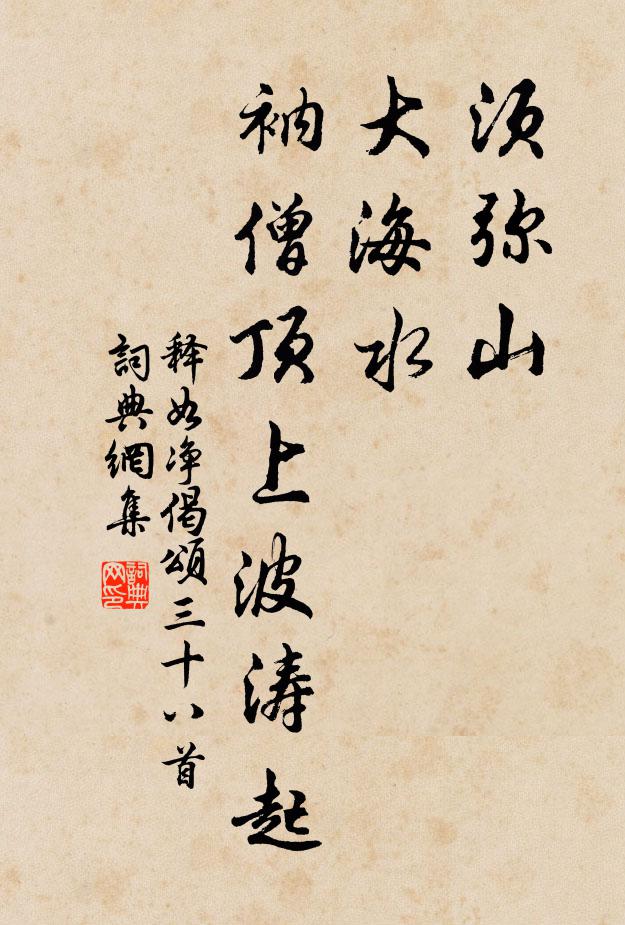 须弥山
大海水
衲僧顶上波涛起
释如净偈颂三十八首
詞典網集
詞典
网印